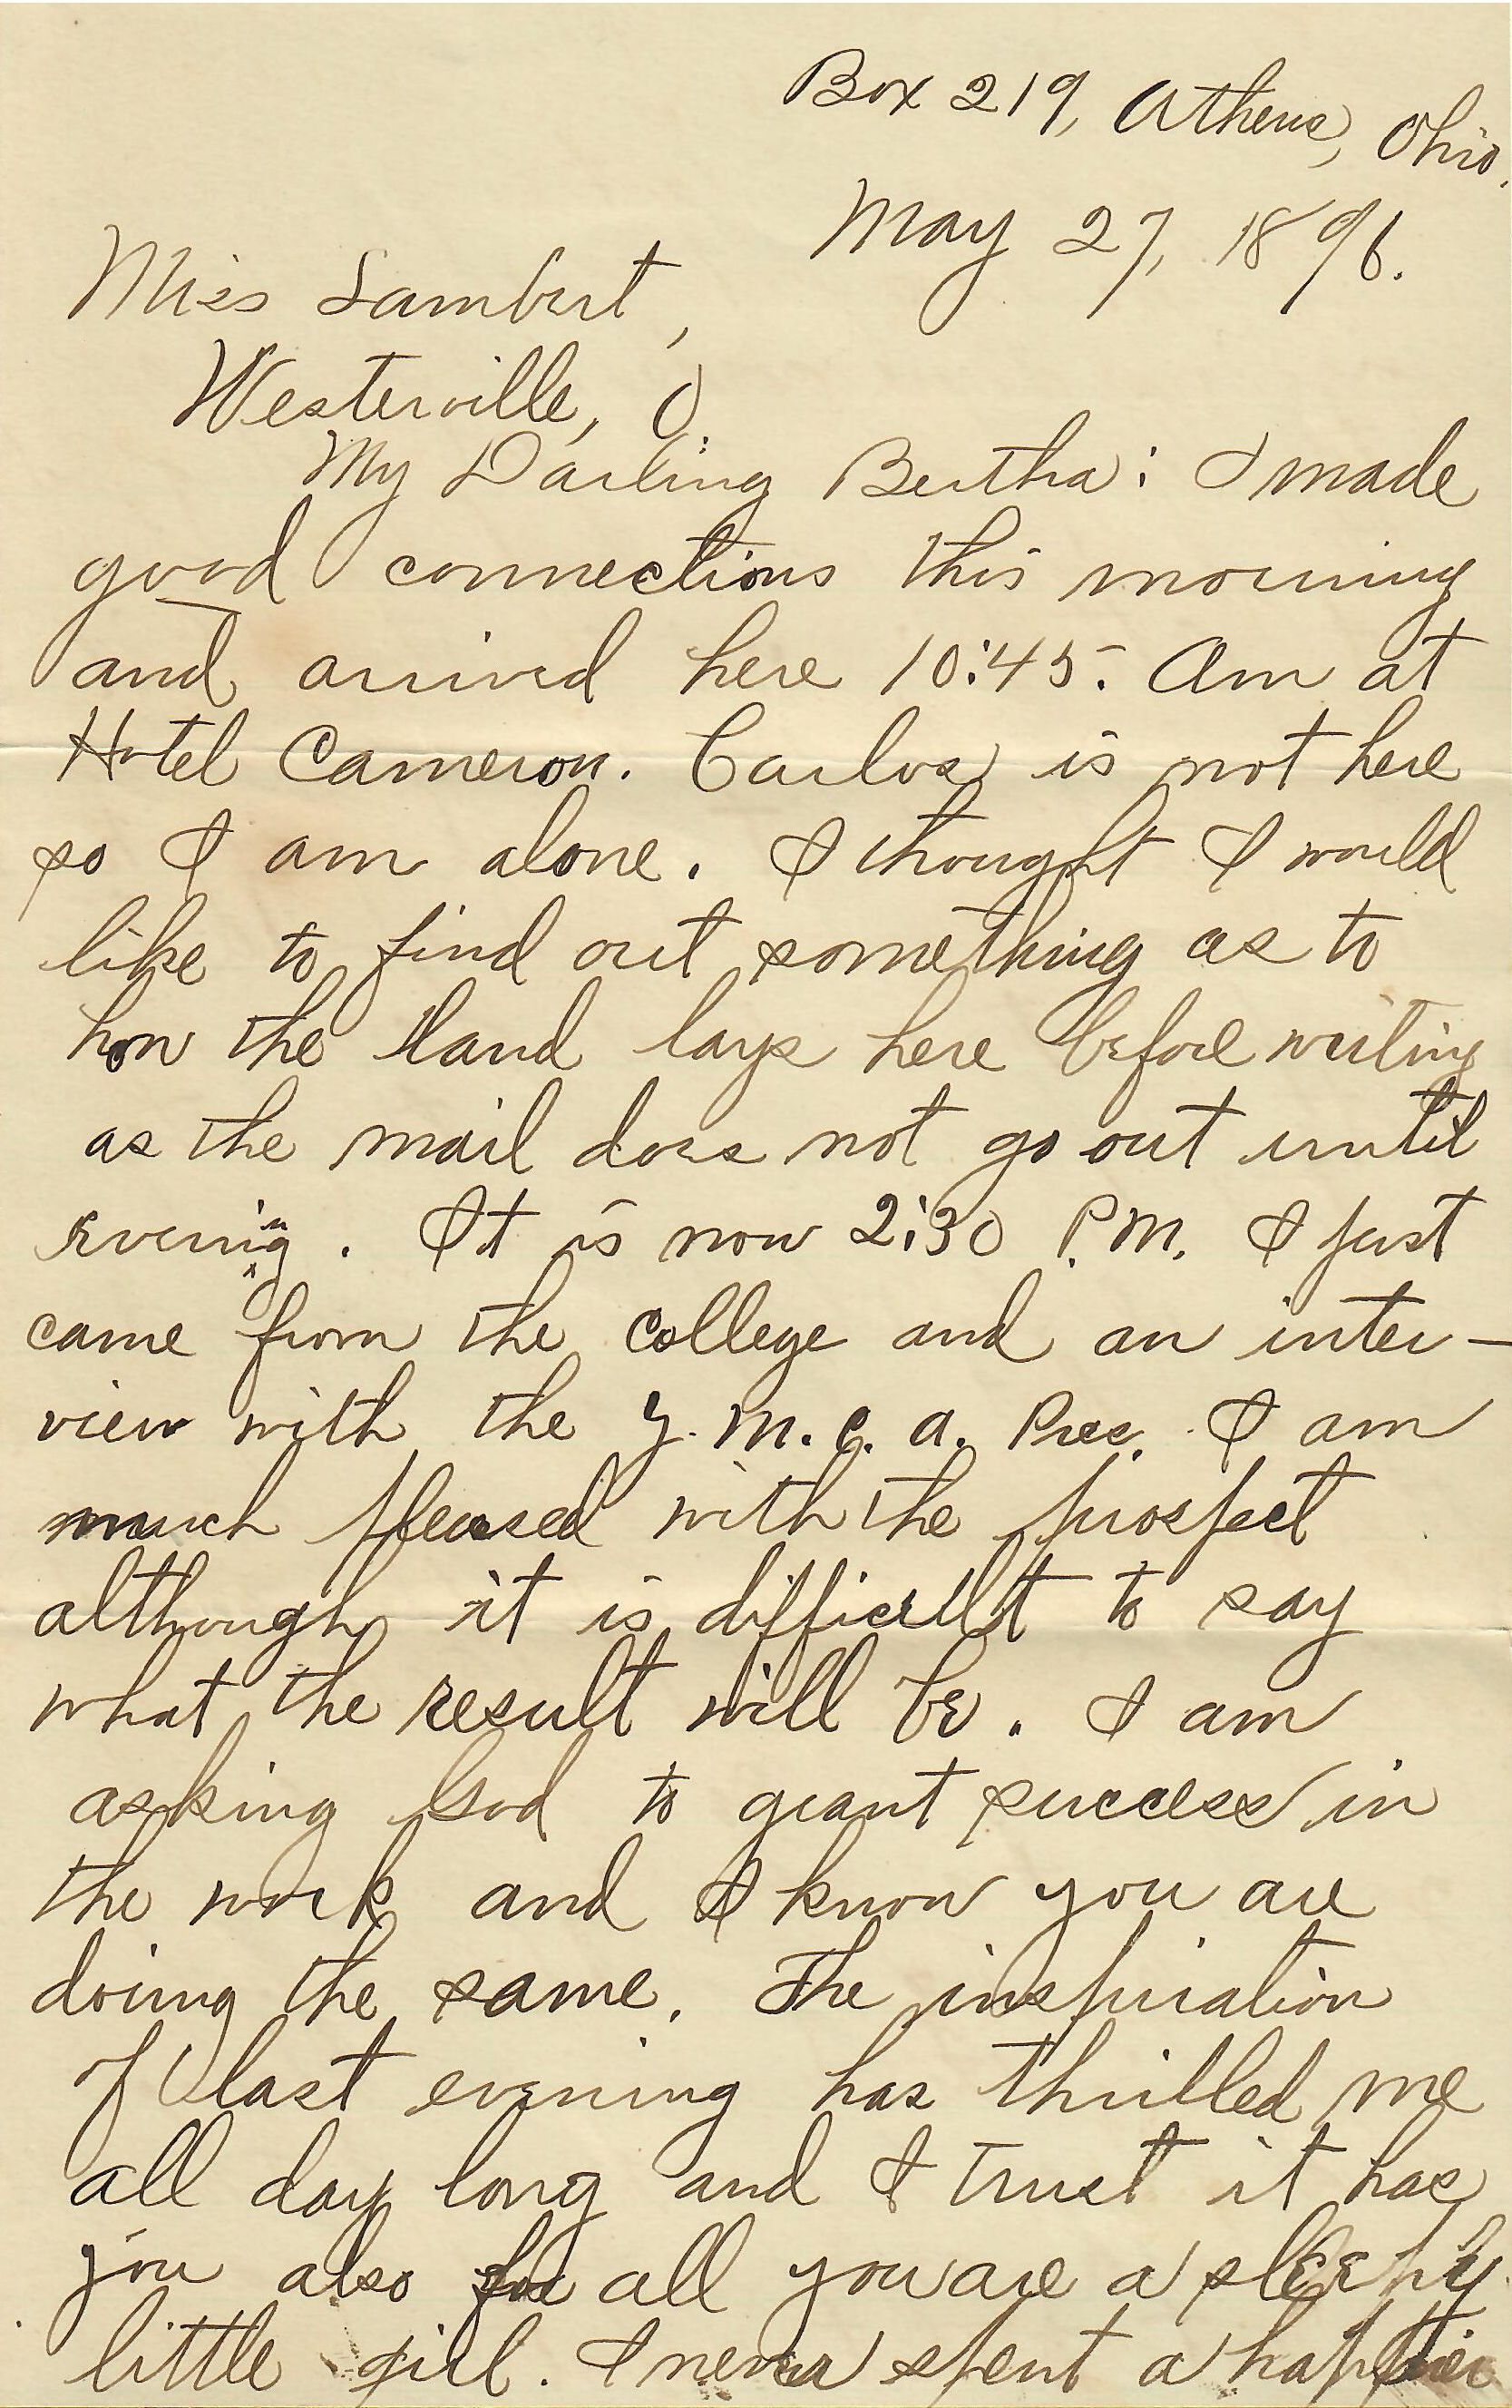 Box 219, Athens, Ohio.
May 27, 1896.
Miss Lambert,
Westerville, O.
My Darling Bertha: I made
good connections this morning
and arrived here 10:45. Am at
Hotel Cameron. Carlos is not here
so I am alone. I thought I would
like to find out something as to
how the land lays here before writing
as the mail does not go out until
evening. It is now 2:30 P.M. I just
came from the college and an inter-
view with the Y.M.C.A. Pres. I am
much pleased with the prospect
although it is difficult to say
what the result will be. I am
asking God to grant success in
the work and I know you are
doing the same. The inspiration
of last evening has thrilled me
all day long and I trust it has
you also for all you are a sleepy
little girl. I never spent a happier